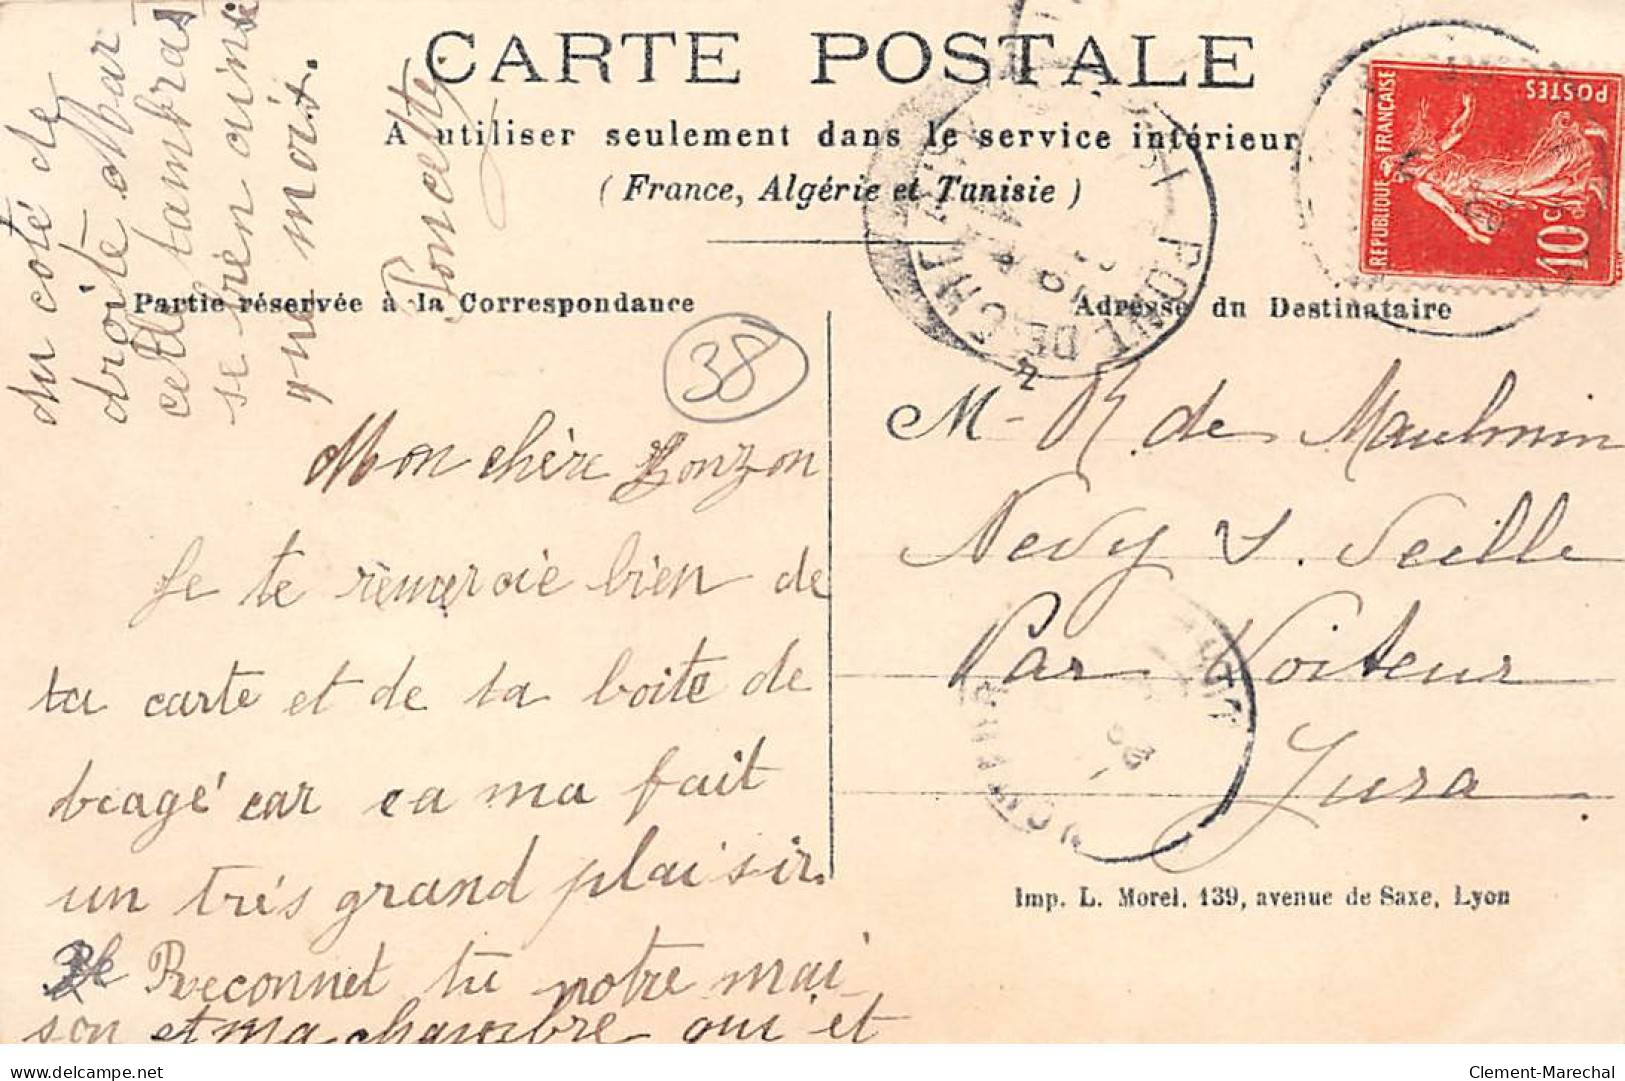 CARTE POSTALE
A utiliser seulement dans le service intérieur
(France, Algérie et Tunisie)
Partie réservée à la Correspondance
Adresse du Destinataire
REPUBLIQUE FRANÇAISE
POSTES
10c
PONT DE
38
Mon chère Zonzon
Je te remercie bien de
ta carte et de ta boite de
car ca ma fait
un trés grand plaisir.
Reconnet tu notre mai
son et ma chambre qui et
du coté de
droite Mar
celle tambras
se bien
que moi.
Poncette
M- R. de Maulmin
Nevy s. Seille
Par Voiteur
Jura
Imp. L. Morel, 139, avenue de Saxe, Lyon
Clement-Marechal